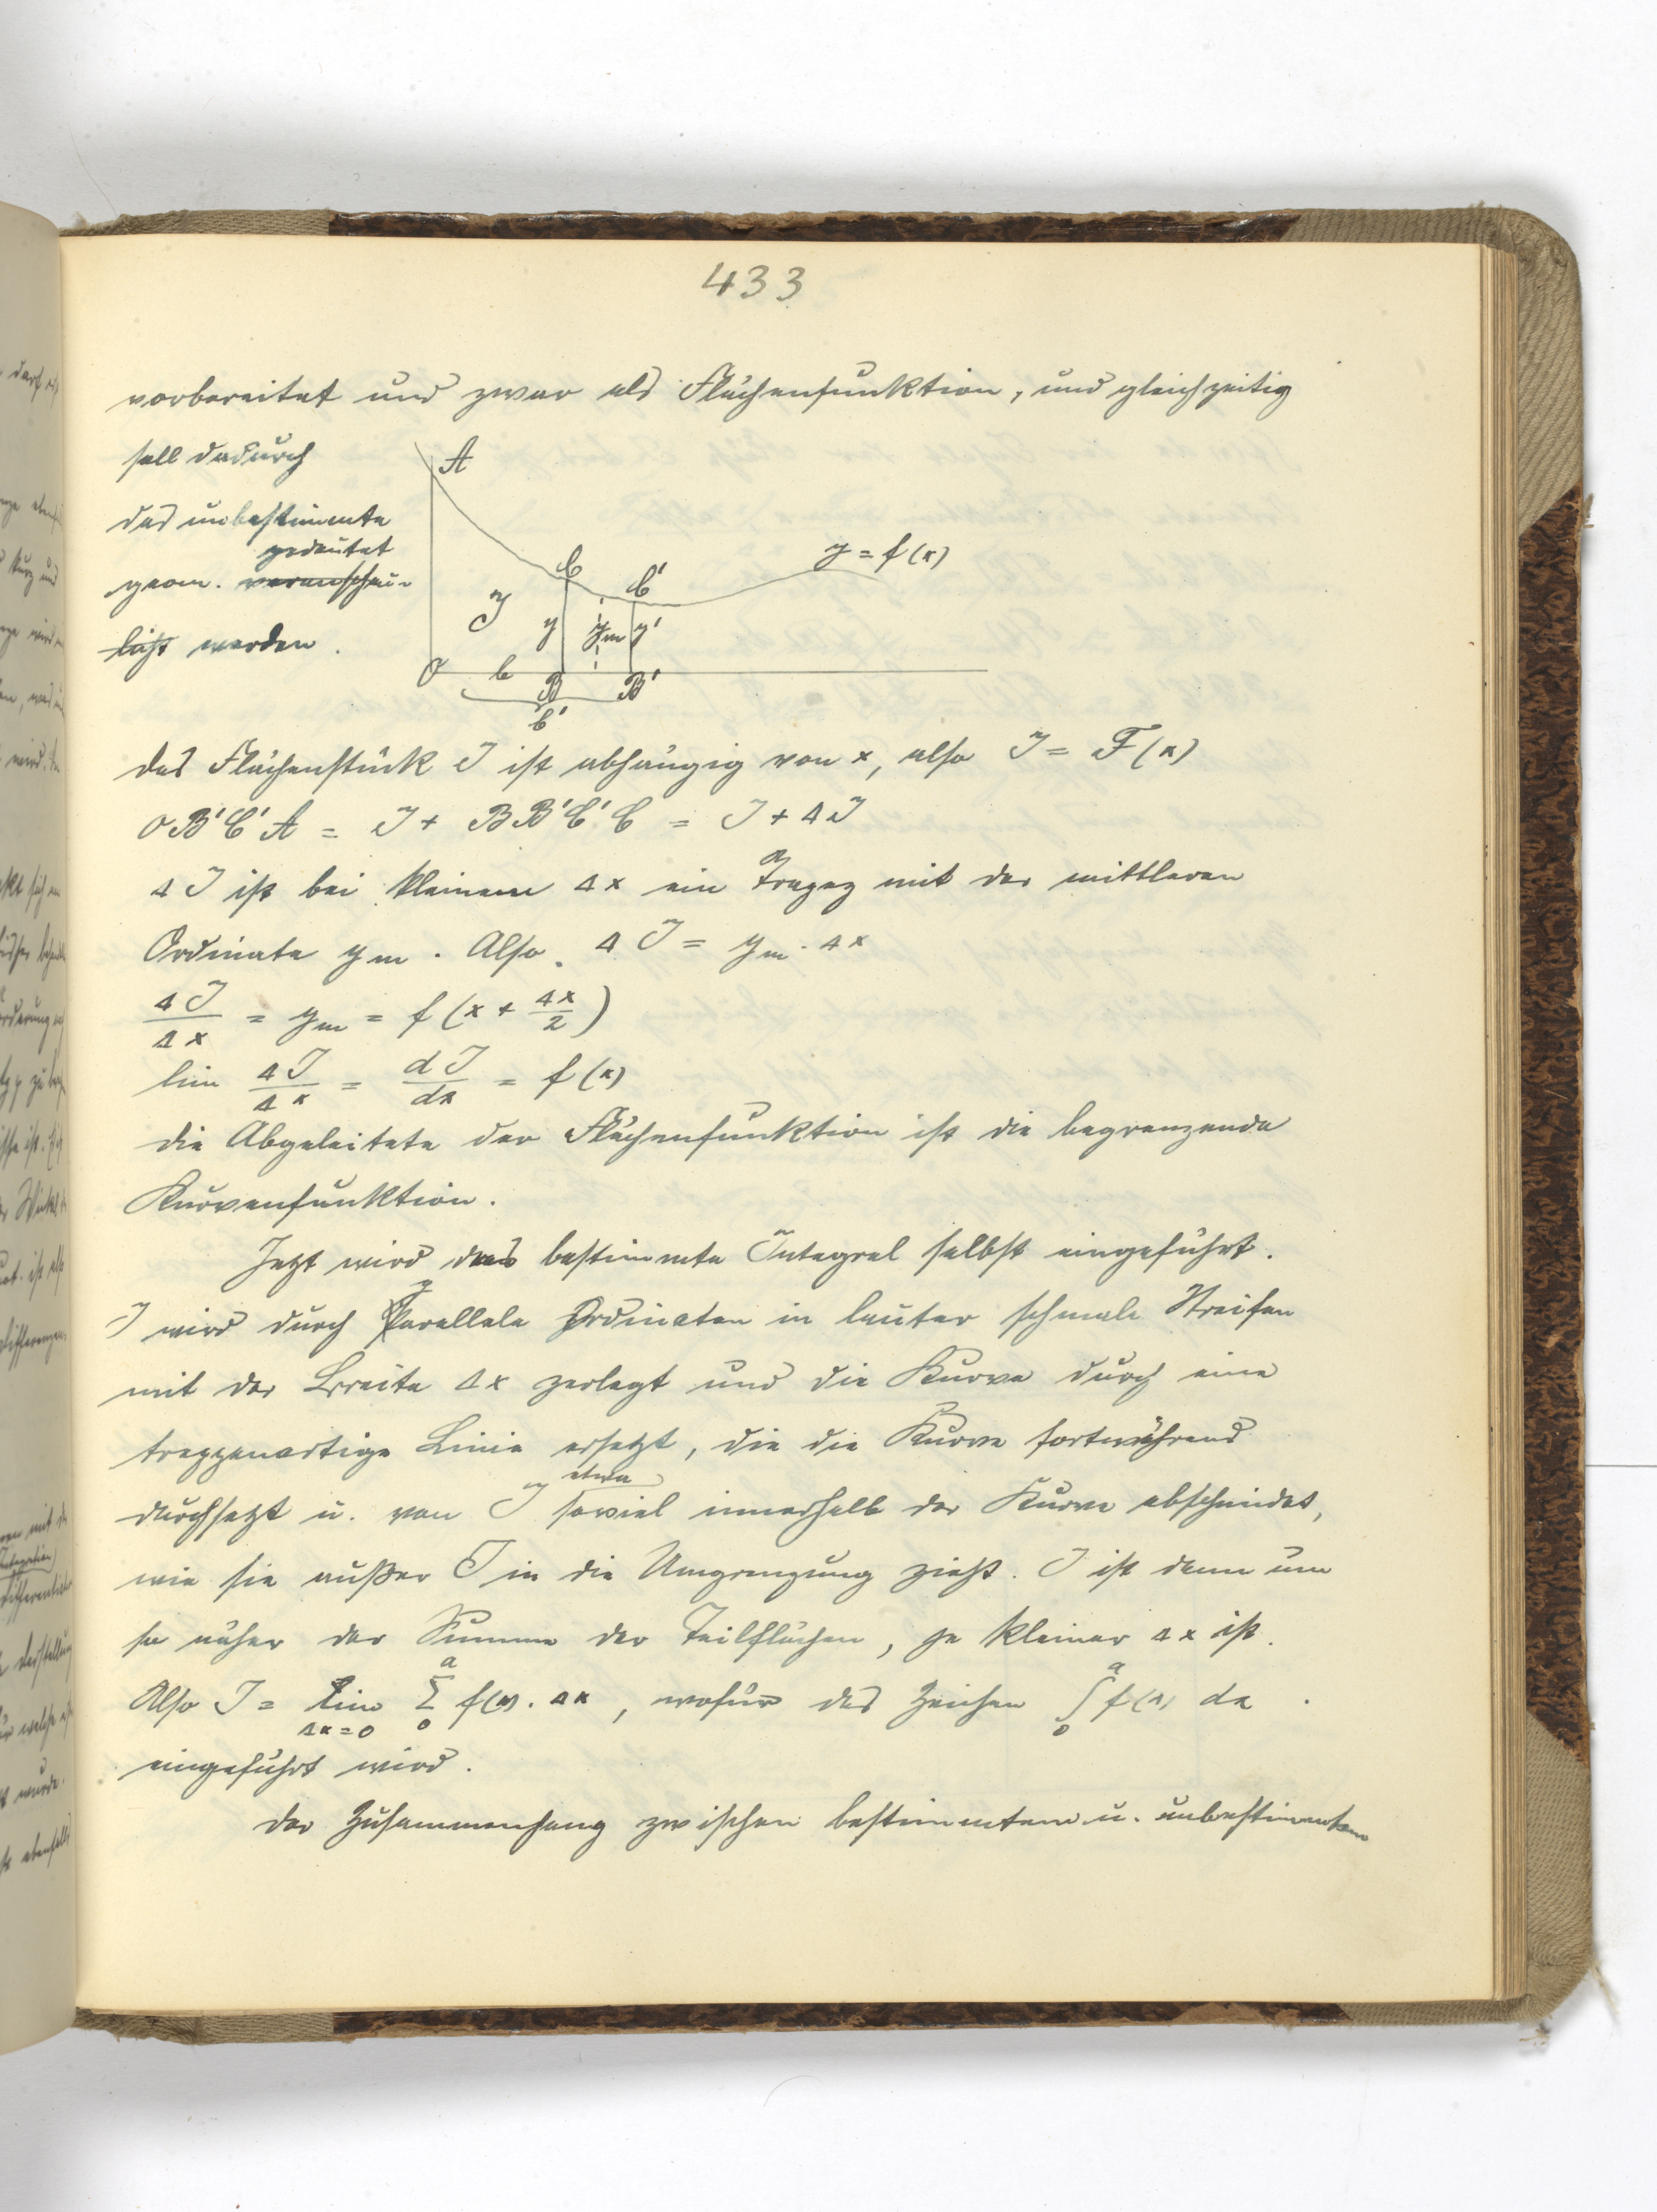 433
vorbereitet und zwar als Flächenfunktion, und gleichzeitig
soll dadurch
das unbestimmte
gedeutet
geom. veranschau-
licht werden.
A
C
C'
y = f(x)
J
y
ym
y'
O
b
B
B'
b'
das Flächenstück J ist abhängig von x, also J = F(x)
OB'C'A = J + BB'C'C = J + ΔJ
ΔJ ist bei kleinem Δx ein Trapez mit der mittleren
Ordinate ym. Also ΔJ = ym · Δx
ΔJ/Δx = ym = f(x + Δx/2)
lim ΔJ/Δx = dJ/dx = f(x)
die Abgeleitete der Flächenfunktion ist die begrenzende
Kurvenfunktion.
Jetzt wird das bestimmte Integral selbst eingeführt.
J wird durch parallele Ordinaten in lauter schmale Streifen
mit der Breite Δx zerlegt und die Kurve durch eine
treppenartige Linie ersetzt, die die Kurve fortwährend
etwa
durchsetzt u. von J soviel innerhalb der Kurve abschneidet,
wie sie außer J in die Umgrenzung zieht. J ist dann um
so näher der Summe der Teilflächen, je kleiner Δx ist.
Also J = lim Δx=0 Σ 0 a f(x) · Δx, wofür das Zeichen ∫ 0 a f(x) dx
eingeführt wird.
der Zusammenhang zwischen bestimmtem u. unbestimmtem